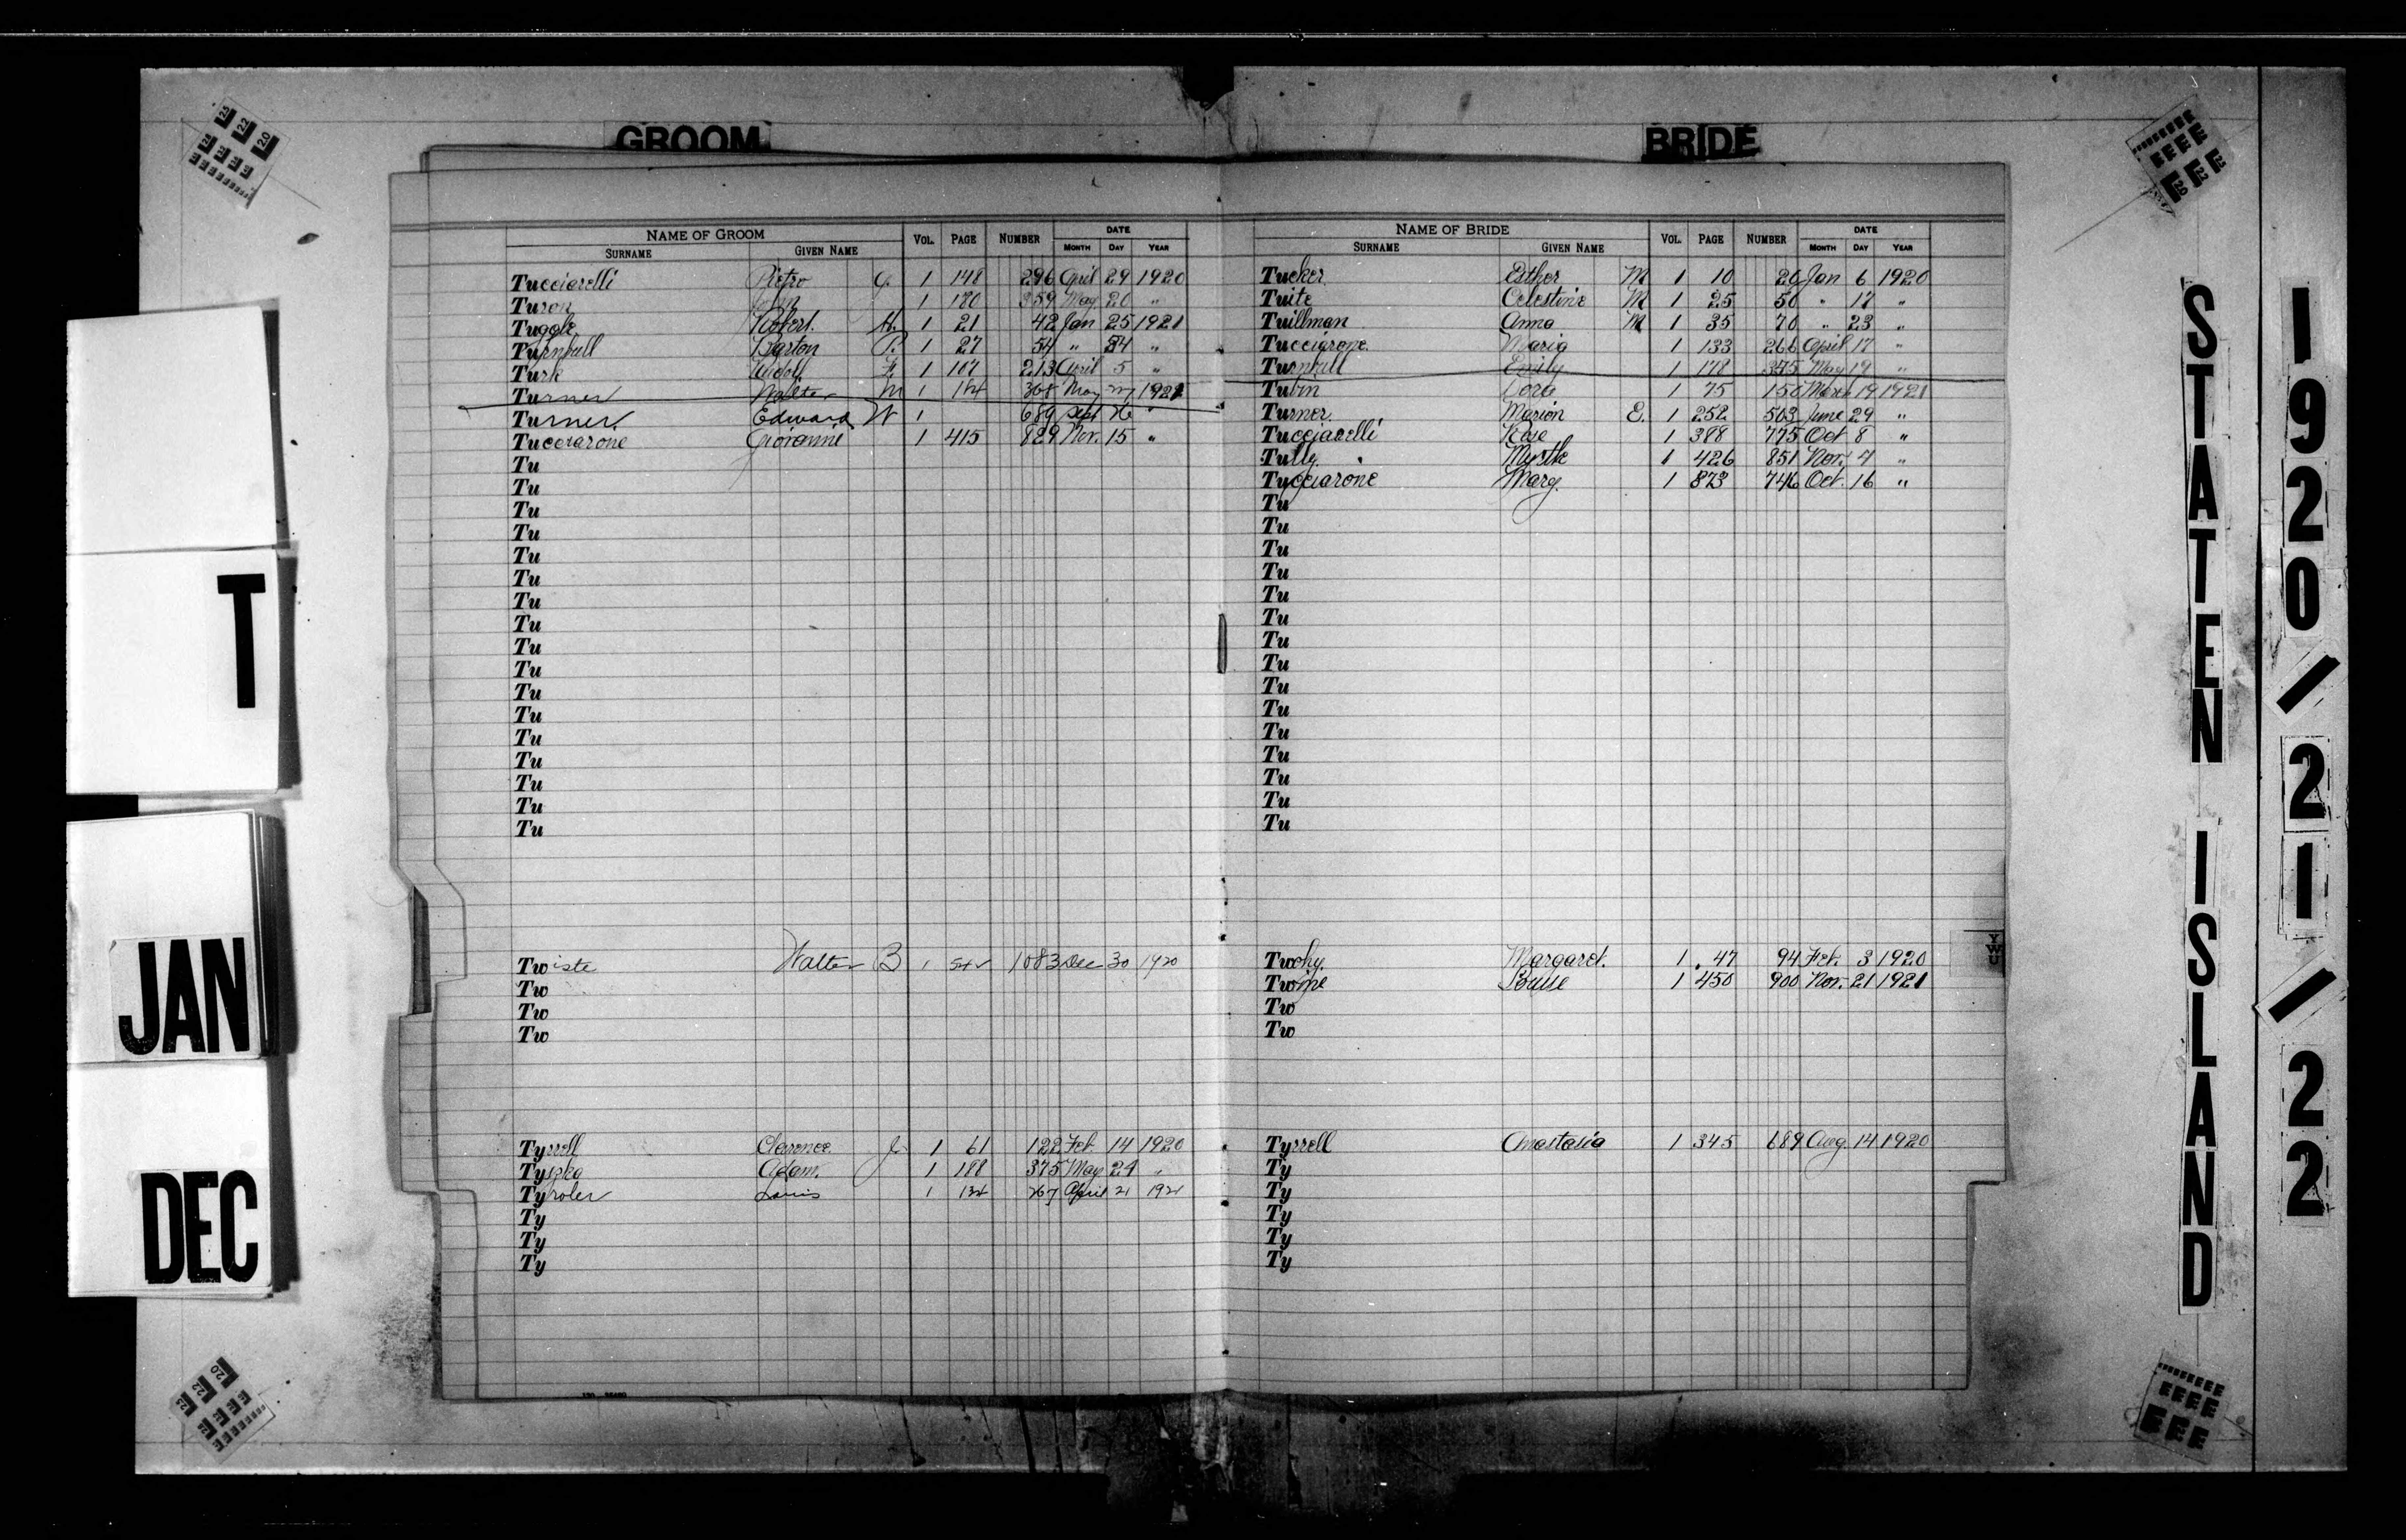 GROOM
NAME OF GROOM VOL. PAGE NUMBER DATE
SURNAME GIVEN NAME MONTH DAY YEAR
Tucciarelli Pietro G. 1 148 296 April 29 1920
Turon John 1 180 359 May 20 "
Tuggle Robert. H. 1 21 42 Jan 25 1921
Turnbull Barton P. 1 27 54 " 34 "
Turk Rudolf F. 1 107 213 April 5 "
Turner Walter M 1 154 308 May 27 1921
Turner Edward W 1 689 Sept 26 "
Tucciarone Giovanni 1 415 829 Nov. 15 "
Tu
Tu
Tu
Tu
Tu
Tu
Tu
Tu
Tu
Tu
Tu
Tu
Tu
Tu
Tu
Tu
Tu
Twiste Walter B 1 542 1083 Dec 30 1920
Tw
Tw
Tw
Tyrrell Clarence J. 1 61 122 Feb. 14 1920
Tyszka Adam. 1 188 375 May 24 "
Tyroler Louis 1 134 267 April 21 1921
Ty
Ty
Ty
BRIDE
NAME OF BRIDE VOL. PAGE NUMBER DATE
SURNAME GIVEN NAME MONTH DAY YEAR
Tucker Esther M 1 10 20 Jan 6 1920
Tuite Celestine M 1 25 50 " 17 "
Tuillman Anna M 1 35 70 " 23 "
Tucciarone Maria 1 133 266 April 17 "
Turnbull Emily 1 178 345 May 19 "
Tubin Dora 1 75 150 March 19 1921
Turner Marion E. 1 252 503 June 29 "
Tucciarelli Rose 1 388 775 Oct 8 "
Tully Myrtle 1 426 851 Nov. 7 "
Tucciarone Mary. 1 873 746 Oct. 16 "
Tu
Tu
Tu
Tu
Tu
Tu
Tu
Tu
Tu
Tu
Tu
Tu
Tu
Tu
Tu
Twohy Margaret. 1 47 94 Feb. 3 1920
Twome Louise 1 450 900 Nov. 21 1921
Tw
Tw
Tyrrell Anastasia 1 345 689 Aug. 14 1920
Ty
Ty
Ty
Ty
Ty
T
JAN
DEC
STATEN ISLAND
1920/21/22